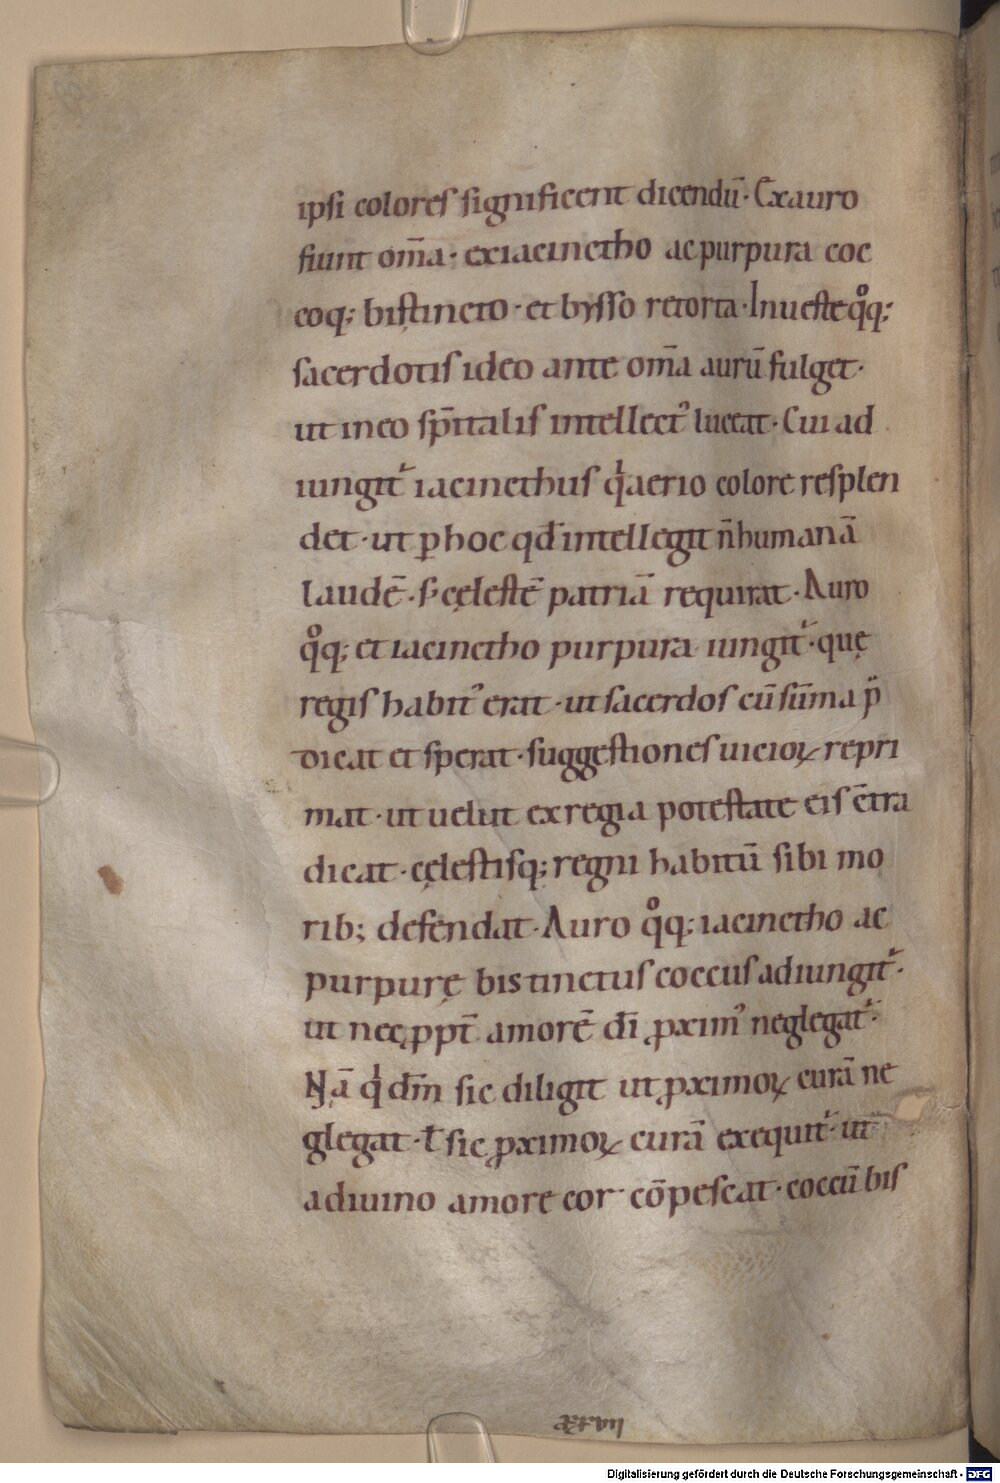 ipsi colores significent dicendū· Exauro
fiunt om̄a· exiacinctho ac purpura coc
coq; bistincto· et bysso retorta· Inueste qͦq;
sacerdotis ideo ante om̄a aurū fulget·
ut in eo sp̄italis intellectꝰ luceat· Cui ad
iungit᷑ iacincthus qͥ aerio colore resplen
det· ut ꝑ hoc qđ intellegit n̄ humanā
laudē· s; cęlestē patriā requirat· Auro
qͦq; et iacinctho purpura iungit᷑· quę
regis habitꝰ erat· ut sacerdos cū sūma p̄
dicat et sperat· suggestiones uicioꝝ repri
mat· ut uelut ex regia potestate eis c̄tra
dicat· cęlestisq; regni habitū sibi mo
rib; defendat· Auro qͦq; iacinctho ac
purpurę bis tinctus coccus adiungit᷑·
ut nec ꝓpt̄ amorē dī ꝓximꝰ neglegat᷑·
Nā qͥ dm̄ sic diligit ut ꝓximoꝝ curā ne
glegat· ł sic ꝓximoꝝ curā exequit᷑· ut
a diuino amore cor cōpescat· coccū bis
Digitalisierung gefördert durch die Deutsche Forschungsgemeinschaft - DFG